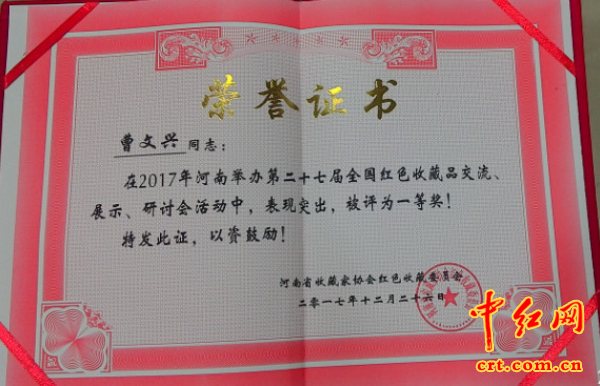 荣誉证书
曹文兴同志：
在2017年河南举办第二十七届全国红色收藏品交流、
展示、研讨会活动中，表现突出，被评为一等奖！
特发此证，以资鼓励！
河南省收藏家协会红色收藏委员会
二零一七年十二月二十六日
中红网
crt.com.cn